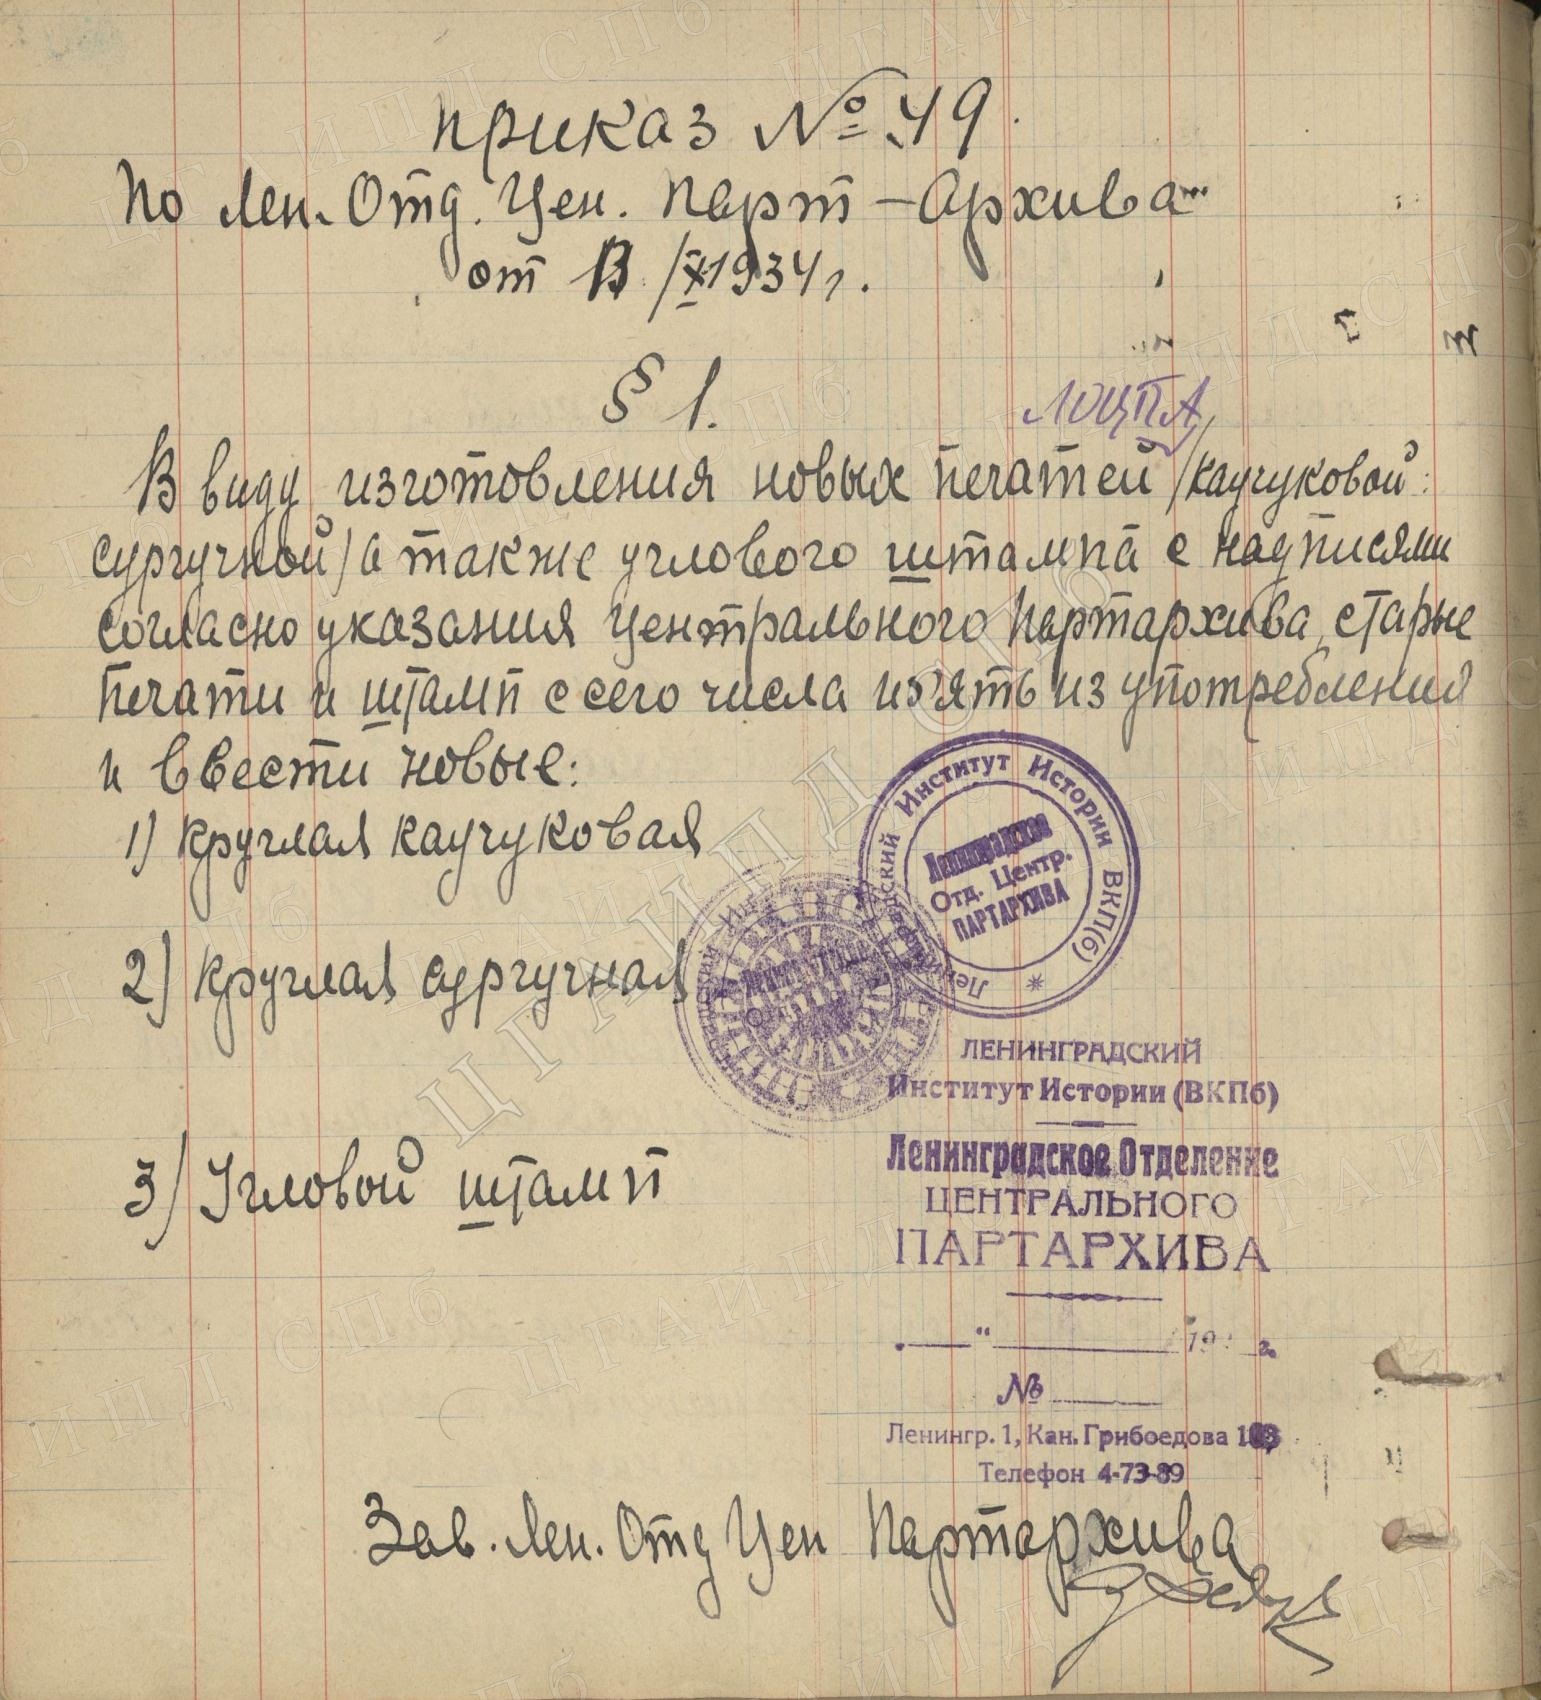 Приказ № 49.
По Лен. Отд. Цен. Парт-Архива
от 13/X 1934 г.
§ 1.
ЛОЦПА
В виду изготовления новых печатей /каучуковой
сургучной/ а также углового штампа с надписями
согласно указания Центрального Партархива, старые
печати и штамп с сего числа из'ять из употребления
и ввести новые:
1) Круглая каучуковая
Ленинградский Институт Истории ВКП(б)
Ленинградское
Отд. Центр.
ПАРТАРХИВА
2) Круглая сургучная
ЛЕНИНГРАДСКИЙ
Институт Истории (ВКПб)
Ленинградское Отделение
ЦЕНТРАЛЬНОГО
ПАРТАРХИВА
3) Угловой штамп
" 193 г.
№
Ленингр. 1, Кан. Грибоедова
Телефон 4-73-89
Зав. Лен. Отд Цен Партархива
ЦГАИПД СПб